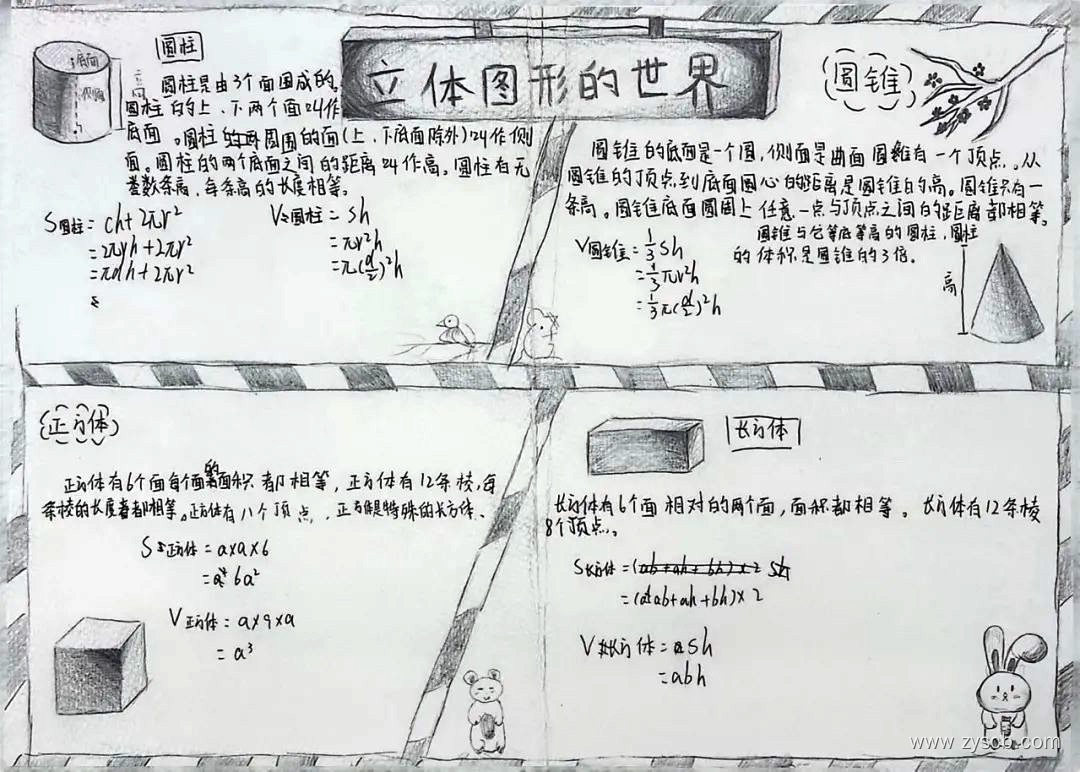 立体图形的世界
圆柱
底面
侧面
高
圆柱是由3个面围成的。
圆柱的上、下两个面叫作
底面。圆柱周围的面(上、下底面除外)叫作侧
面。圆柱的两个底面之间的距离叫作高。圆柱有无
数条高，每条高的长度相等。
S圆柱=ch+2πr²
=2πrh+2πr²
=πdh+2πr²
V圆柱=sh
=πr²h
=π(d/2)²h
圆锥
圆锥的底面是一个圆，侧面是曲面圆锥有一个顶点。从
圆锥的顶点到底面圆心的距离是圆锥的高。圆锥只有一
条高。圆锥底面圆周上任意一点与顶点之间的距离都相等。
圆锥与它等底等高的圆柱，圆柱
的体积是圆锥的3倍。
V圆锥=1/3sh
=1/3πr²h
=1/3π(d/2)²h
高
正方体
正方体有6个面每个面的面积都相等，正方体有12条棱，每
条棱的长度都相等。正方体有八个顶点，正方体是特殊的长方体、
S正方体=a×a×6
=6a²
V正方体=a×a×a
=a³
长方体
长方体有6个面相对的两个面，面积都相等。长方体有12条棱
8个顶点。
S长方体=(ab+ah+bh)×2
=(ab+ah+bh)×2
V长方体=sh
=abh
www.zyscb.com